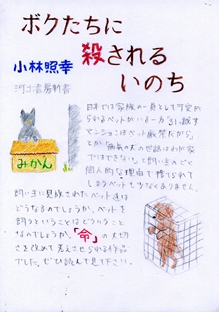 ボクたちに
殺される
いのち
小林照幸
河出書房新書
みかん
日本では家族の一員として可愛が
られるペットがいる一方「引っ越す
マンションはペット厳禁だから」
とか「病気の犬の世話はわが家
ではできない」と飼い主のごく
個人的な理由で捨てられて
しまうペットも少なくありません。
飼い主に見放されたペット達は
どうなるのでしょうか。ペットを
飼うということはどういうこと
なのでしょうか。「命」の大切
さを改めて考えさせられる作品
でした。ぜひ読んで見て下さい。